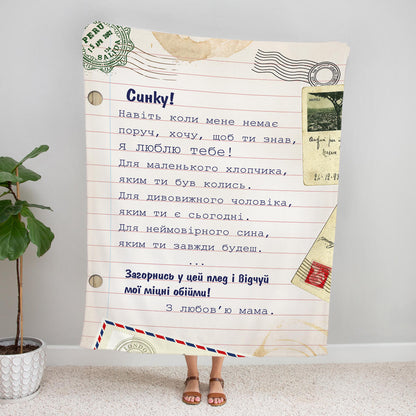 PERU
15 APR 2002
SALIDA
Синку!
Навіть коли мене немає
поруч, хочу, щоб ти знав,
Я люблю тебе!
Для маленького хлопчика,
яким ти був колись.
Для дивовижного чоловіка,
яким ти є сьогодні.
Для неймовірного сина,
яким ти завжди будеш.
...
Загорнись у цей плед і відчуй
мої міцні обійми!
З любов'ю мама.